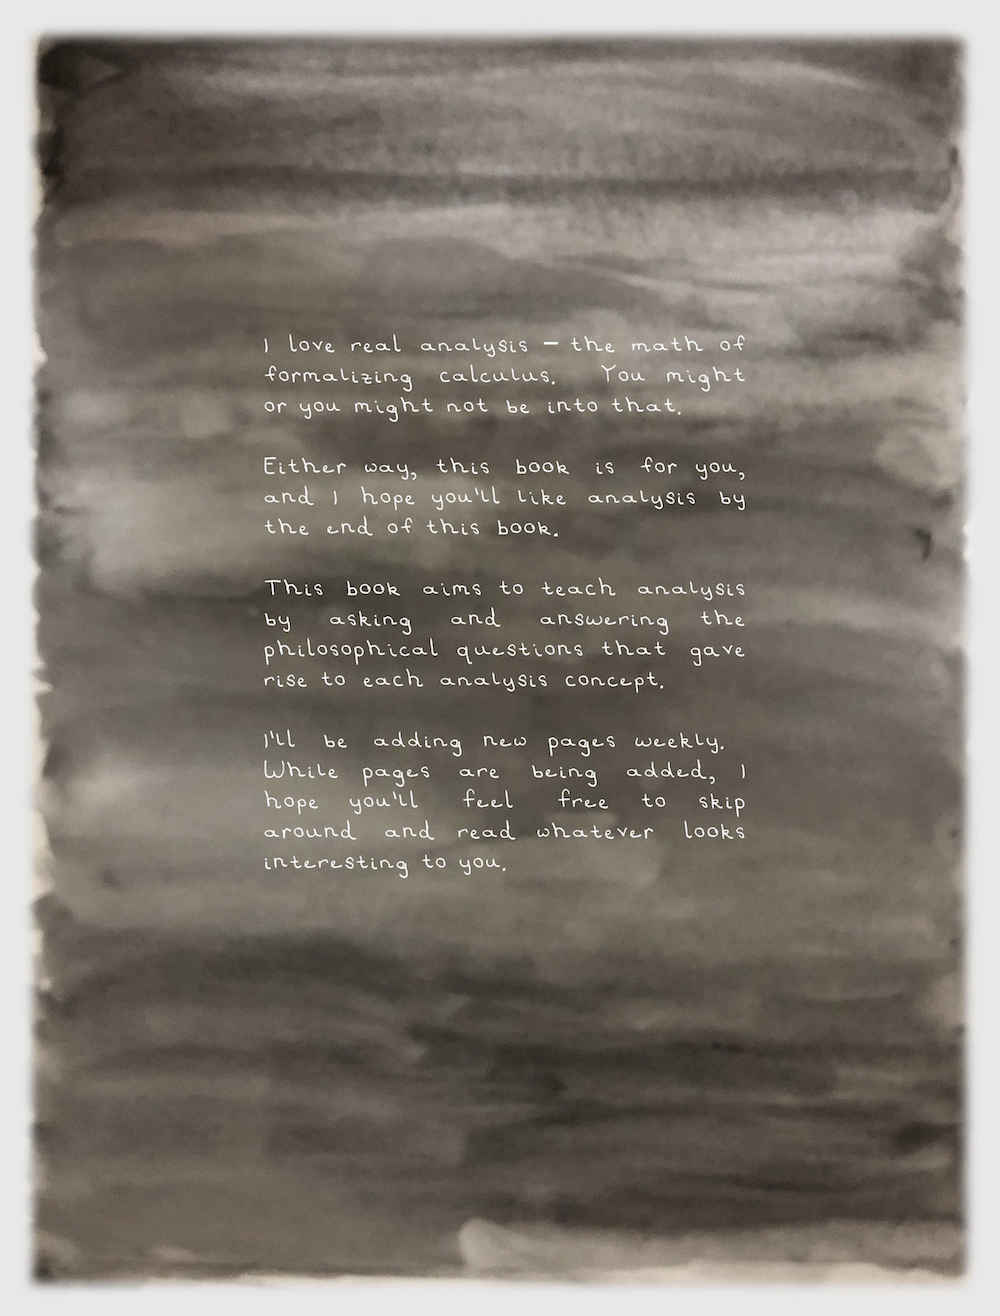 I love real analysis – the math of
formalizing calculus. You might
or you might not be into that.
Either way, this book is for you,
and I hope you'll like analysis by
the end of this book.
This book aims to teach analysis
by asking and answering the
philosophical questions that gave
rise to each analysis concept.
I'll be adding new pages weekly.
While pages are being added, I
hope you'll feel free to skip
around and read whatever looks
interesting to you.